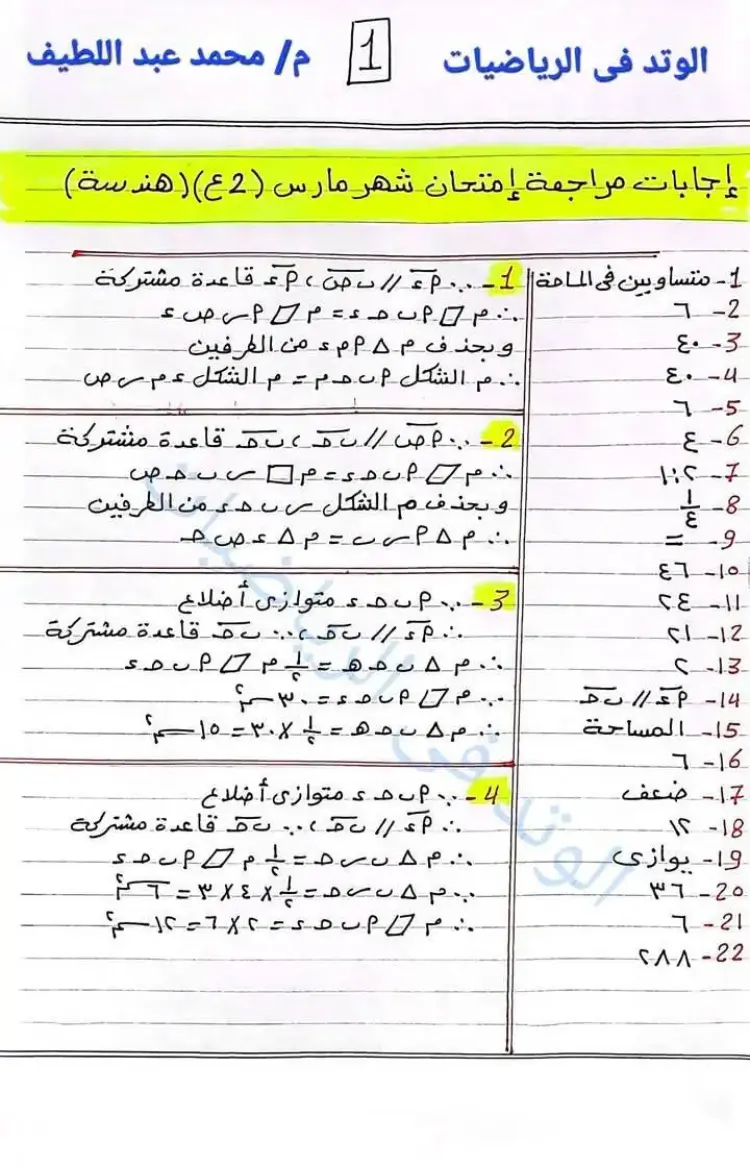 الوتد فى الرياضيات 1 م/ محمد عبد اللطيف
إجابات مراجعة إمتحان شهر مارس (2ع)(هندسة)
1- متساويين فى المساحة
2- ٦
3- ٤٠
4- ٤٠
5- ٦
6- ٤
7- ١:٢
8- ١/٤
9- =
10- ٤٦
11- ٢٤
12- ٢١
13- ٢
14- أء // بحـ
15- المساحة
16- ٦
17- ضعف
18- ١٢
19- يوازى
20- ٣٦
21- ٦
22- ٢٨٨
1- ∵ أء // س ص ، أء قاعدة مشتركة
∴ م ▱ أ ب حـ ء = م ▱ أ س ص ء
وبحذف م △ أ م ء من الطرفين
∴ م الشكل أ ب حـ م = م الشكل ء م س ص
2- ∵ أص // بحـ ، بحـ قاعدة مشتركة
∴ م ▱ أ ب حـ ء = م □ س ب حـ ص
وبحذف م الشكل س ب حـ ء من الطرفين
∴ م △ أ س ب = م △ ء ص حـ
3- ∵ أ ب حـ ء متوازى أضلاع
∴ أء // بحـ ، ∵ بحـ قاعدة مشتركة
∴ م △ ب حـ هـ = ١/٢ م ▱ أ ب حـ ء
∵ م ▱ أ ب حـ ء = ٣٠ سم٢
∴ م △ ب حـ هـ = ١/٢ × ٣٠ = ١٥ سم٢
4- ∵ أ ب حـ ء متوازى أضلاع
∴ أء // بحـ ، ∵ بحـ قاعدة مشتركة
∴ م △ ب س حـ = ١/٢ م ▱ أ ب حـ ء
∵ م △ ب س حـ = ١/٢ × ٤ × ٣ = ٦ سم٢
∴ م ▱ أ ب حـ ء = ٢ × ٦ = ١٢ سم٢
الوتد فى الرياضيات